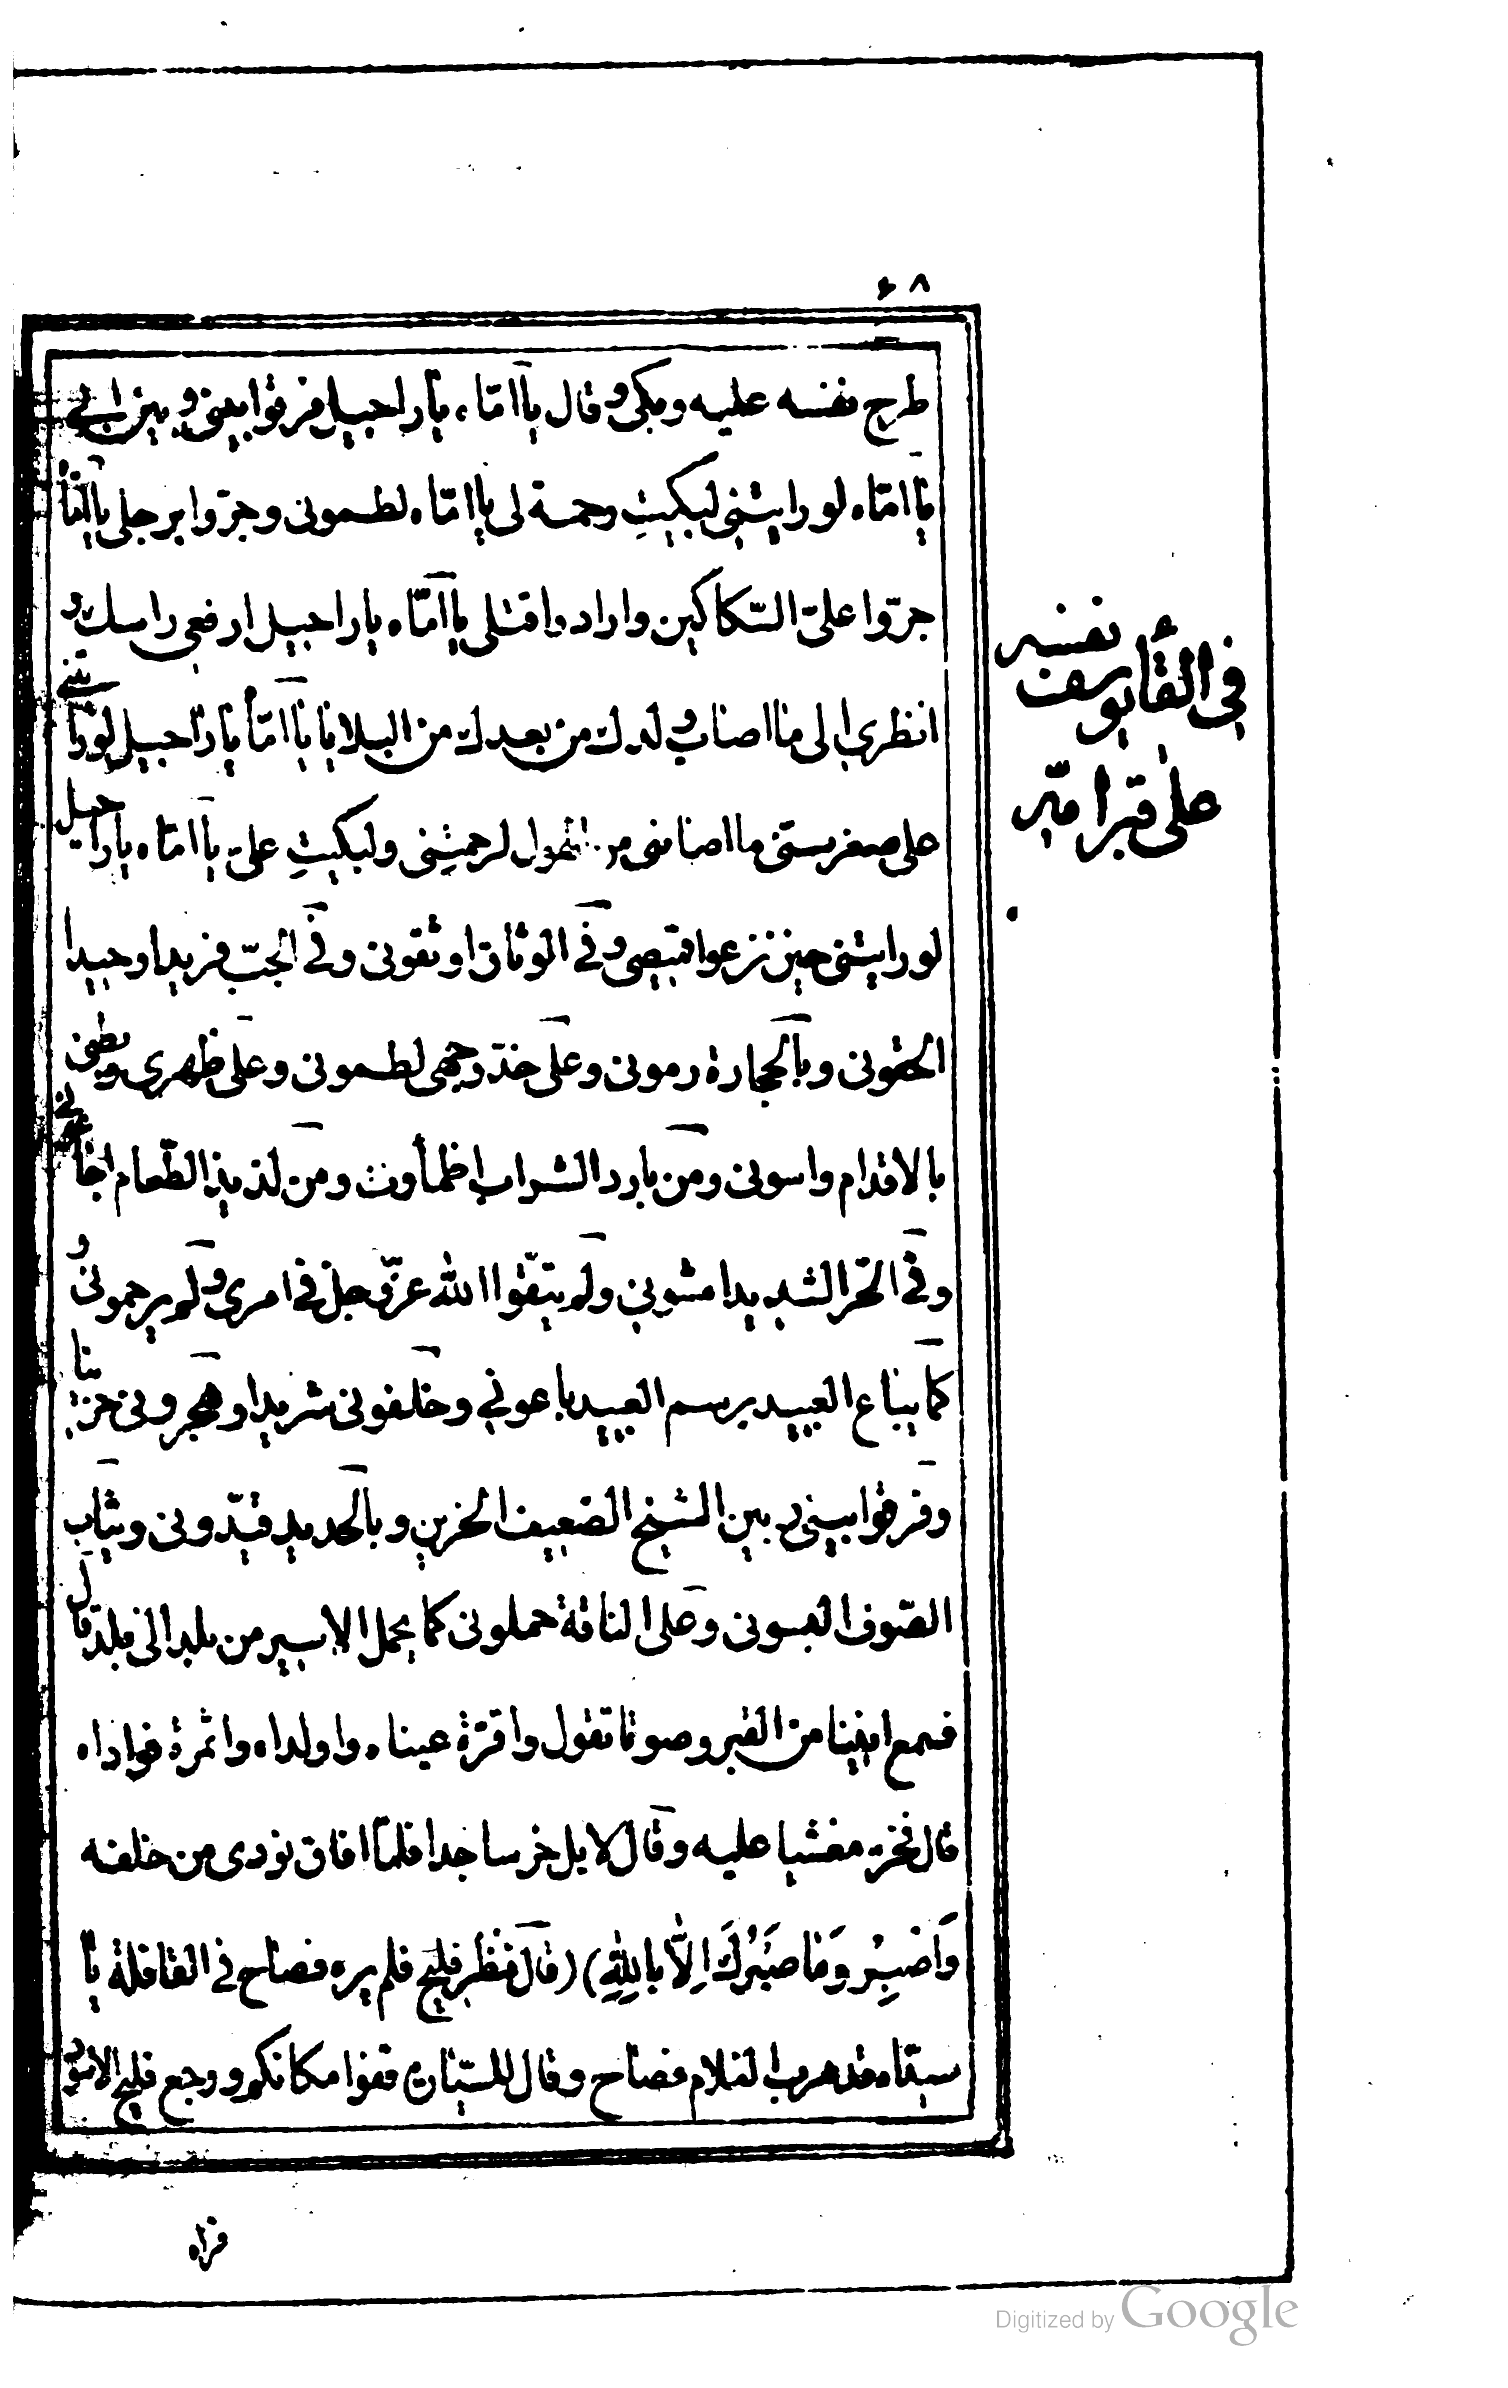 ٤٨
طرح نفسه عليه وبكى وقال يا امّاه يا راحيل فرقوا بيني وبين ابي
يا امّاه لو رايتني لبكيت رحمة لي يا امّاه لطموني وجرّوا برجلي يا امّاه
جرّوا عليّ السّكاكين وارادوا قتلي يا امّاه يا راحيل ارفعي راسك و
انظري الى ما اصاب ولدك من بعدك من البلايا يا امّاه يا راحيل لو رايتني
على صغر سني ما اصابني من لرحمتني ولبكيت عليّ يا امّاه يا راحيل
لو رايتني حين نزعوا قميصي وفي الوثاق اوثقوني وفي الجبّ فريدا وحيدا
القوني وبالحجارة رموني وعلى خدّ وجهي لطموني وعلى ظهري وبطني
بالاقدام داسوني ومن بارد الشراب اظمأوني ومن لذيذ الطّعام اجاعوني
وفي الحر الشديد امشوني ولم يتّقوا الله عزّ وجل في امري ولم يرحموني و
كما يباع العبيد برسم العبيد باعوني وخلفوني شريدا وهجروني حزينا
وفرقوا بيني وبين الشيخ الضعيف الحزين وبالحديد قيّدوني وثياب
الصّوف البسوني وعلى الناقة حملوني كما يحمل الاسير من بلد الى بلد قال
فسمع انينا من القبر وصوتا تقول وا قرّة عيناه وا ولداه وا ثمرة فواداه
قال فخرّ مغشيا عليه وقال لا بل خر ساجدا فلمّا افاق نودي من خلفه
وَاصْبِرْ وَمَا صَبْرُكَ اِلَّا بِاللهِ) (قال فنظر فليح فلم يره فصاح في القافلة يا
سيّداه قد هرب الغلام فصاح وقال للسيّارة قفوا مكانكم ورجع فليح الاسود
فراه
في القا يوسف نفسه
على قبر امّه
Digitized by Google